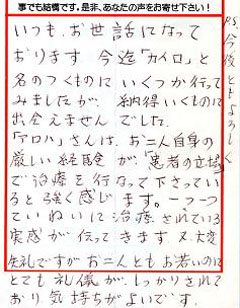 事でも結構です。是非、あなたの声をお寄せ下さい!
いつも、お世話になって
おります。今迄「カイロ」と
名のつくものに いくつか行って
みましたが、納得いくものに
出会えませんでした。
「アロハ」さんは、お二人自身の
厳しい経験が、「患者の立場」
で治療を行なって下さってい
ると強く感じます。一つ一つ
ていねいに治療されている
実感が伝ってきます。又、大変
失礼ですが お二人とも お若いのに
とても礼儀が、しっかりされて
おり、気持ちがよいです。
P.S. 今後ともよろしく